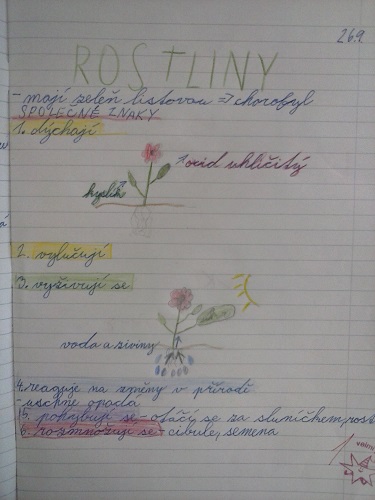 26.9.
ROSTLINY
- mají zeleň listovou => chorobyl
SPOLEČNÉ ZNAKY
1. dýchají
oxid uhličitý
kyslík
2. vylučují
3. vyživují se
voda a živiny
4. reaguje na změny v přírodě
- uschne, opadá
5. pohybují se - otáčí se za sluníčkem, rost
6. rozmnožují se - cibule, semena